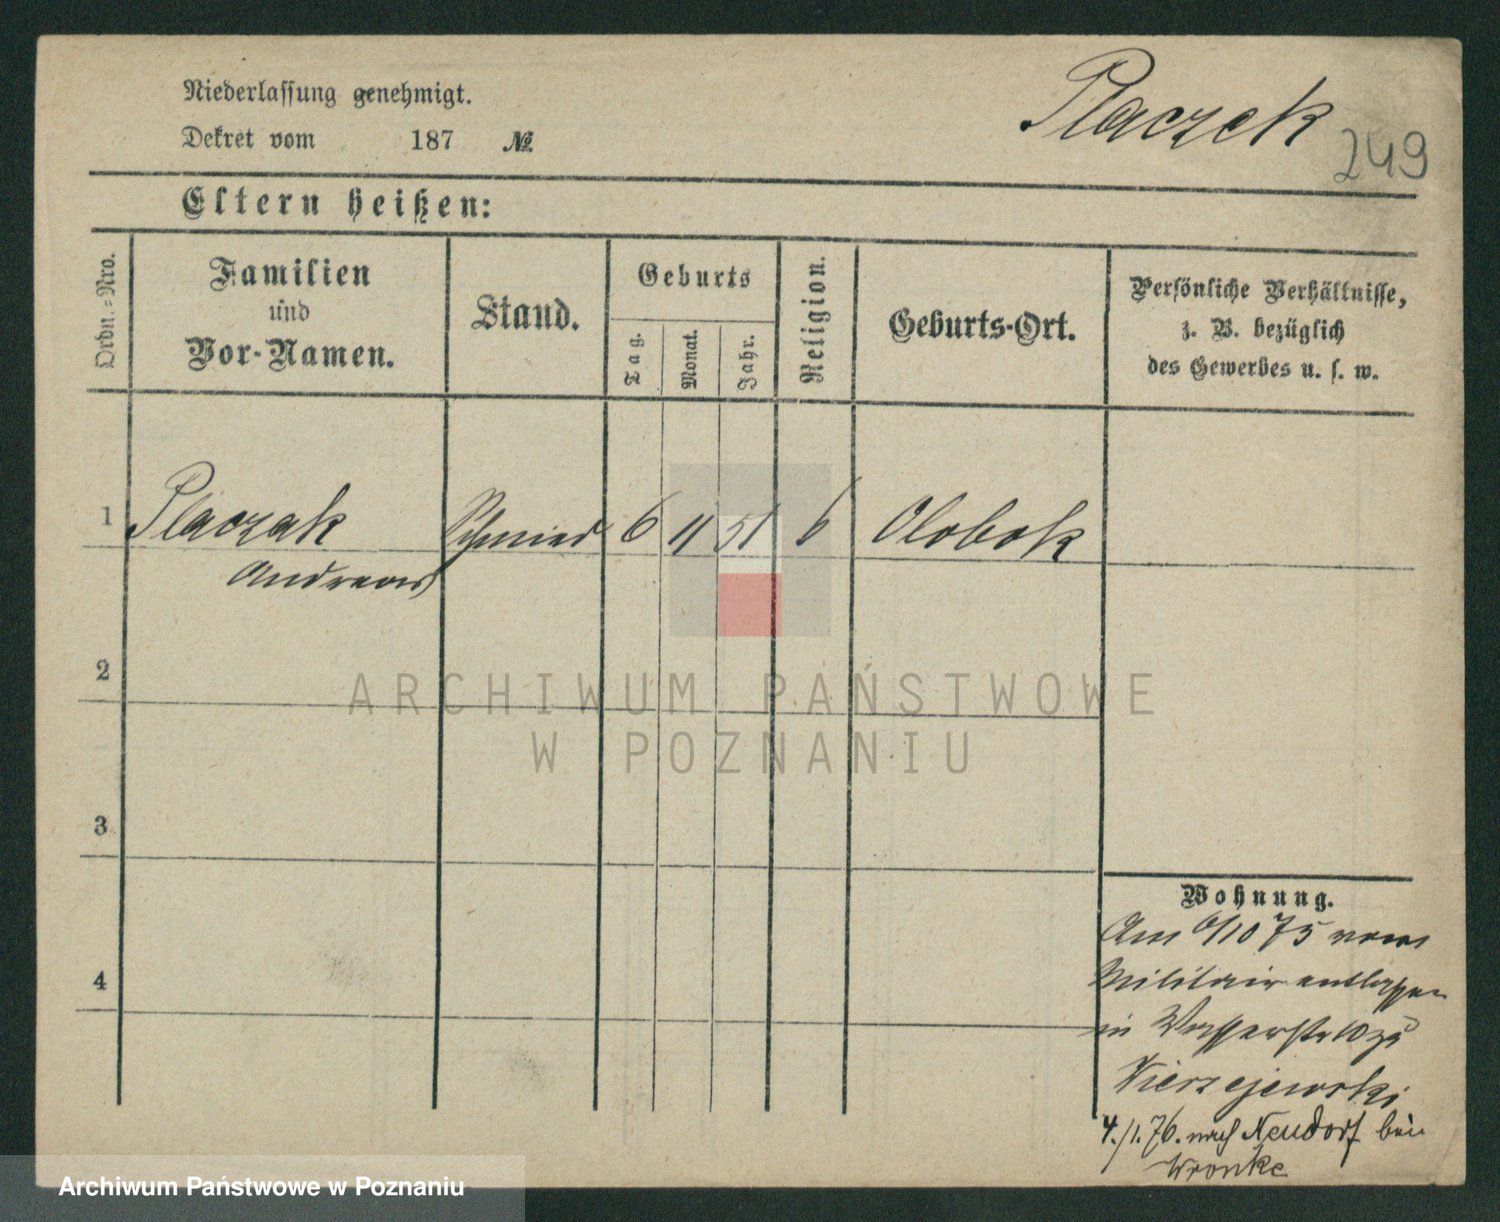 Niederlassung genehmigt.
Dekret vom 187 №
Placzek
249
Eltern heißen:
Ordn.-Nro.
Familien
und
Vor-Namen.
Stand.
Geburts
Tag.
Monat.
Jahr.
Religion.
Geburts-Ort.
Persönliche Verhältnisse,
z. B. bezüglich
des Gewerbes u. s. w.
1 Placzak Schmied 6 11 51 Olobok
Andreas
2
3
4
Wohnung.
Am 6/10 75 vom
Militair entlassen
in Wasserstr 10 zu
4./1.76. nach Neudorf bei
Wronke
ARCHIWUM PAŃSTWOWE
W POZNANIU
Archiwum Państwowe w Poznaniu